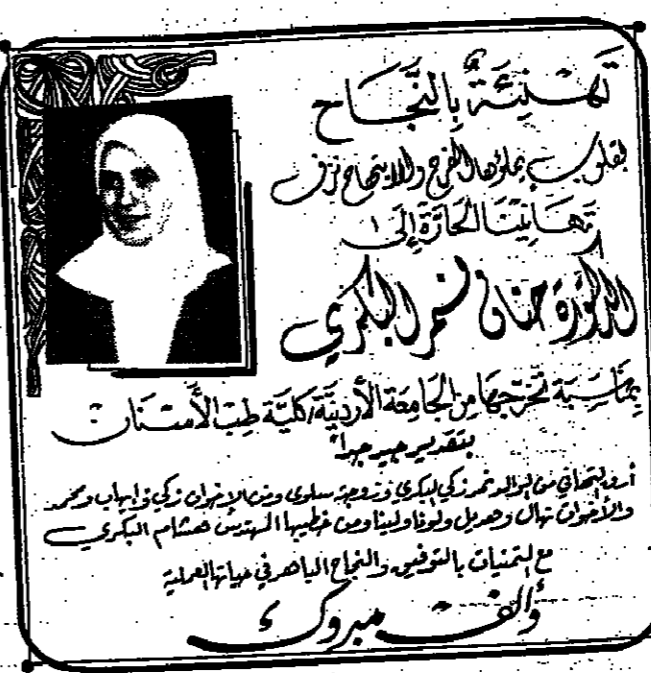 تَهْنِئَةٌ بِالنَّجَاح
بقلوب يملؤها الفرح والابتهاج نزف
تهانينا الحارة إلى
الدكتورة حنان نمر البكري
بمناسبة تخرجها من الجامعة الأردنية/كلية طب الأسنان
بتقدير جيد جداً
أرق التهاني من الوالد نمر زكي البكري وزوجته سلوى ومن الإخوان زكي وإيهاب ومحمد
والأخوات نهال وهديل ولونا ولينا ومن خطيبها المهندس هشام البكري
مع التمنيات بالتوفيق والنجاح الباهر في حياتها العملية
وألف مبروك